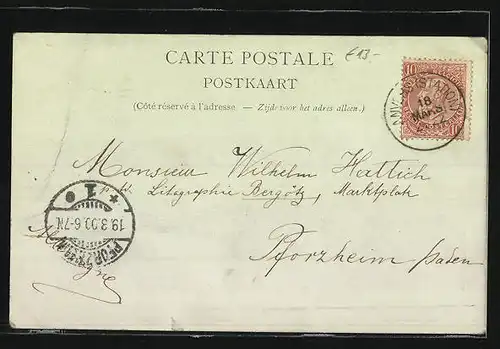 CARTE POSTALE
POSTKAART
(Côté réservé à l'adresse. — Zijde voor het adres alleen.)
£13.-
10 10
18
MARS
Monsieur Wilhelm Hattich
Litographie Bergötz, Marktplatz
Pforzheim Baden
Allemagne
1
19.3.00.6-7N.
PFORZHEIM